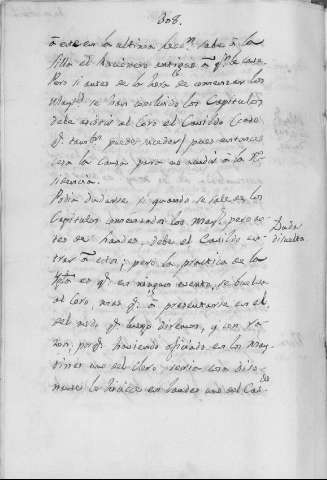 308.
ò este en la ultima sale à la
silla el Racionero antiguo à qn. le case.
Pero si antes de la hora de comenzar los
Mayts. se han concluido los Capitulos
debe asistir al Coro el Cavildo (caso
qe. tambn. puede suceder) pues entonces
cesa la causa para no acudir à la Re-
sidencia.
Podia dudarse si quando se sale de los
Capitulos comenzados los May. pero an-
tes de Laudes, debe el Cavildo en-
trar à estos; pero la practica de la
Ygla. es qe. en ningun evento, se buelva
al Coro, mas qe. à presentarse en el,
del modo qe. luego diremos, y con ra-
zon, porqe. haviendo oficiado en los May-
tines uno del Clero, seria cosa diso-
nante lo hiciese en Laudes uno del Cav-
do.
Duda
disuelta